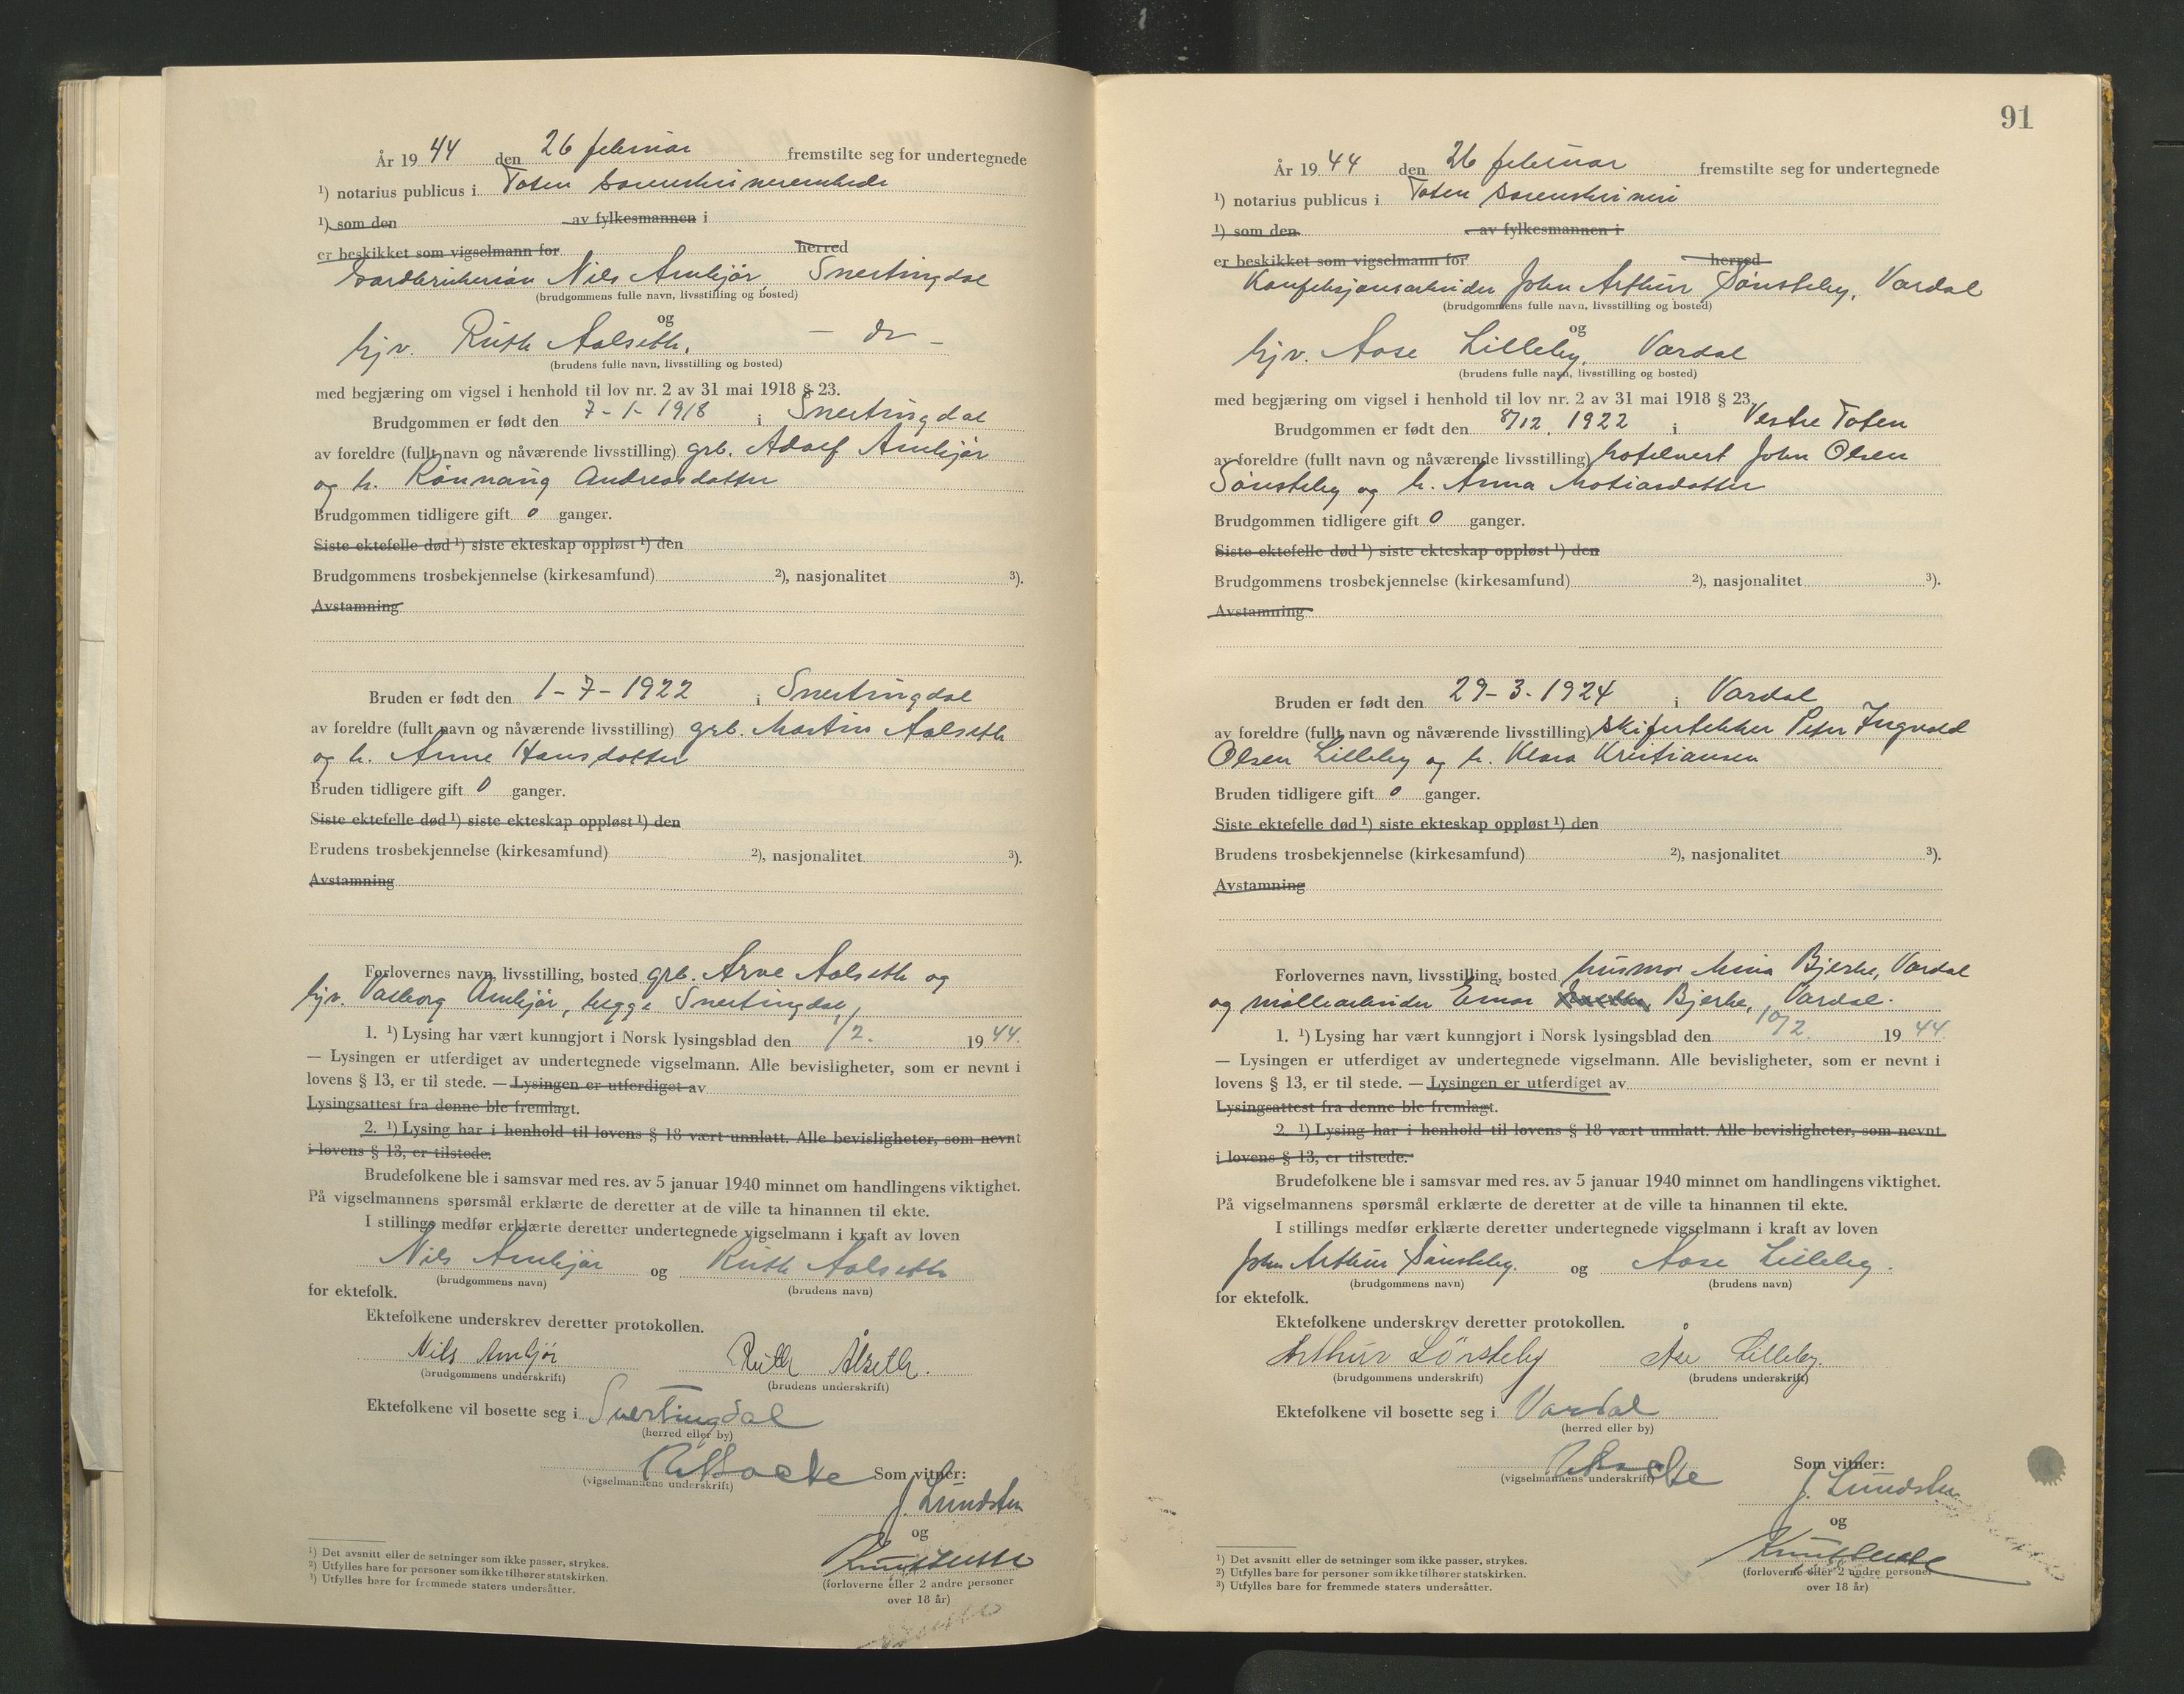 År 19 44 den 26 februar fremstilte seg for undertegnede
¹) notarius publicus i Toten sorenskriverembede
¹) som den av fylkesmannen i
er beskikket som vigselmann for herred
Nils Amlijør, Snertingdal
(brudgommens fulle navn, livsstilling og bosted)
og
hjv. Ruth Aalseth, — do —
(brudens fulle navn, livsstilling og bosted)
med begjæring om vigsel i henhold til lov nr. 2 av 31 mai 1918 § 23.
Brudgommen er født den 7-1-1918 i Snertingdal
av foreldre (fullt navn og nåværende livsstilling) grb. Adolf Amlijør
og h. Rønnaug Andreasdatter
Brudgommen tidligere gift 0 ganger.
Siste ektefelle død ¹) siste ekteskap oppløst ¹) den
Brudgommens trosbekjennelse (kirkesamfund) ²), nasjonalitet ³).
Avstamning
Bruden er født den 1-7-1922 i Snertingdal
av foreldre (fullt navn og nåværende livsstilling) grb. Martin Aalseth
og h. Anne Hansdatter
Bruden tidligere gift 0 ganger.
Siste ektefelle død ¹) siste ekteskap oppløst ¹) den
Brudens trosbekjennelse (kirkesamfund) ²), nasjonalitet ³).
Avstamning
Forlovernes navn, livsstilling, bosted grb. Arve Aalseth og
hjv. Valborg Amlijør, begge Snertingdal,
1. ¹) Lysing har vært kunngjort i Norsk lysingsblad den 1/2. 19 44.
— Lysingen er utferdiget av undertegnede vigselmann. Alle bevisligheter, som er nevnt i
lovens § 13, er til stede. — Lysingen er utferdiget av
Lysingsattest fra denne ble fremlagt.
2. ¹) Lysing har i henhold til lovens § 18 vært unnlatt. Alle bevisligheter, som nevnt
i lovens § 13, er tilstede.
Brudefolkene ble i samsvar med res. av 5 januar 1940 minnet om handlingens viktighet.
På vigselmannens spørsmål erklærte de deretter at de ville ta hinannen til ekte.
I stillings medfør erklærte deretter undertegnede vigselmann i kraft av loven
Nils Amlijør og Ruth Aalseth
(brudgommens navn) (brudens navn)
for ektefolk.
Ektefolkene underskrev deretter protokollen.
Nils Amlijør Ruth Ålseth.
(brudgommens underskrift) (brudens underskrift)
Ektefolkene vil bosette seg i Snertingdal
(herred eller by)
Som vitner:
(vigselmannens underskrift)
J. Lundsten
og
(forloverne eller 2 andre personer
over 18 år)
¹) Det avsnitt eller de setninger som ikke passer, strykes.
²) Utfylles bare for personer som ikke tilhører statskirken.
³) Utfylles bare for fremmede staters undersåtter.
91
År 19 44 den 26 februar fremstilte seg for undertegnede
¹) notarius publicus i Toten sorenskriveri
¹) som den av fylkesmannen i
er beskikket som vigselmann for herred
Konfeksjonsarbeider John Arthur Sønsteby, Vardal
(brudgommens fulle navn, livsstilling og bosted)
og
hjv. Aase Lilleby, Vardal
(brudens fulle navn, livsstilling og bosted)
med begjæring om vigsel i henhold til lov nr. 2 av 31 mai 1918 § 23.
Brudgommen er født den 8/12. 1922 i Vestre Toten
av foreldre (fullt navn og nåværende livsstilling) hotelvert John Olsen
Sønsteby og h. Anna Matiasdatter
Brudgommen tidligere gift 0 ganger.
Siste ektefelle død ¹) siste ekteskap oppløst ¹) den
Brudgommens trosbekjennelse (kirkesamfund) ²), nasjonalitet ³).
Avstamning
Bruden er født den 29-3-1924 i Vardal
av foreldre (fullt navn og nåværende livsstilling) skifertekker Peter Ingvald
Olsen Lilleby og h. Klara Kristiansen
Bruden tidligere gift 0 ganger.
Siste ektefelle død ¹) siste ekteskap oppløst ¹) den
Brudens trosbekjennelse (kirkesamfund) ²), nasjonalitet ³).
Avstamning
Forlovernes navn, livsstilling, bosted husmor Mina Bjerke, Vardal
og møllearbeider Einar Bjerke, Vardal.
1. ¹) Lysing har vært kunngjort i Norsk lysingsblad den 10/2. 19 44
— Lysingen er utferdiget av undertegnede vigselmann. Alle bevisligheter, som er nevnt i
lovens § 13, er til stede. — Lysingen er utferdiget av
Lysingsattest fra denne ble fremlagt.
2. ¹) Lysing har i henhold til lovens § 18 vært unnlatt. Alle bevisligheter, som nevnt
i lovens § 13, er tilstede.
Brudefolkene ble i samsvar med res. av 5 januar 1940 minnet om handlingens viktighet.
På vigselmannens spørsmål erklærte de deretter at de ville ta hinannen til ekte.
I stillings medfør erklærte deretter undertegnede vigselmann i kraft av loven
John Arthur Sønsteby. og Aase Lilleby.
(brudgommens navn) (brudens navn)
for ektefolk.
Ektefolkene underskrev deretter protokollen.
Arthur Sønsteby Åse Lilleby.
(brudgommens underskrift) (brudens underskrift)
Ektefolkene vil bosette seg i Vardal
(herred eller by)
Som vitner:
(vigselmannens underskrift)
J. Lundsten
og
(forloverne eller 2 andre personer
over 18 år)
¹) Det avsnitt eller de setninger som ikke passer, strykes.
²) Utfylles bare for personer som ikke tilhører statskirken.
³) Utfylles bare for fremmede staters undersåtter.